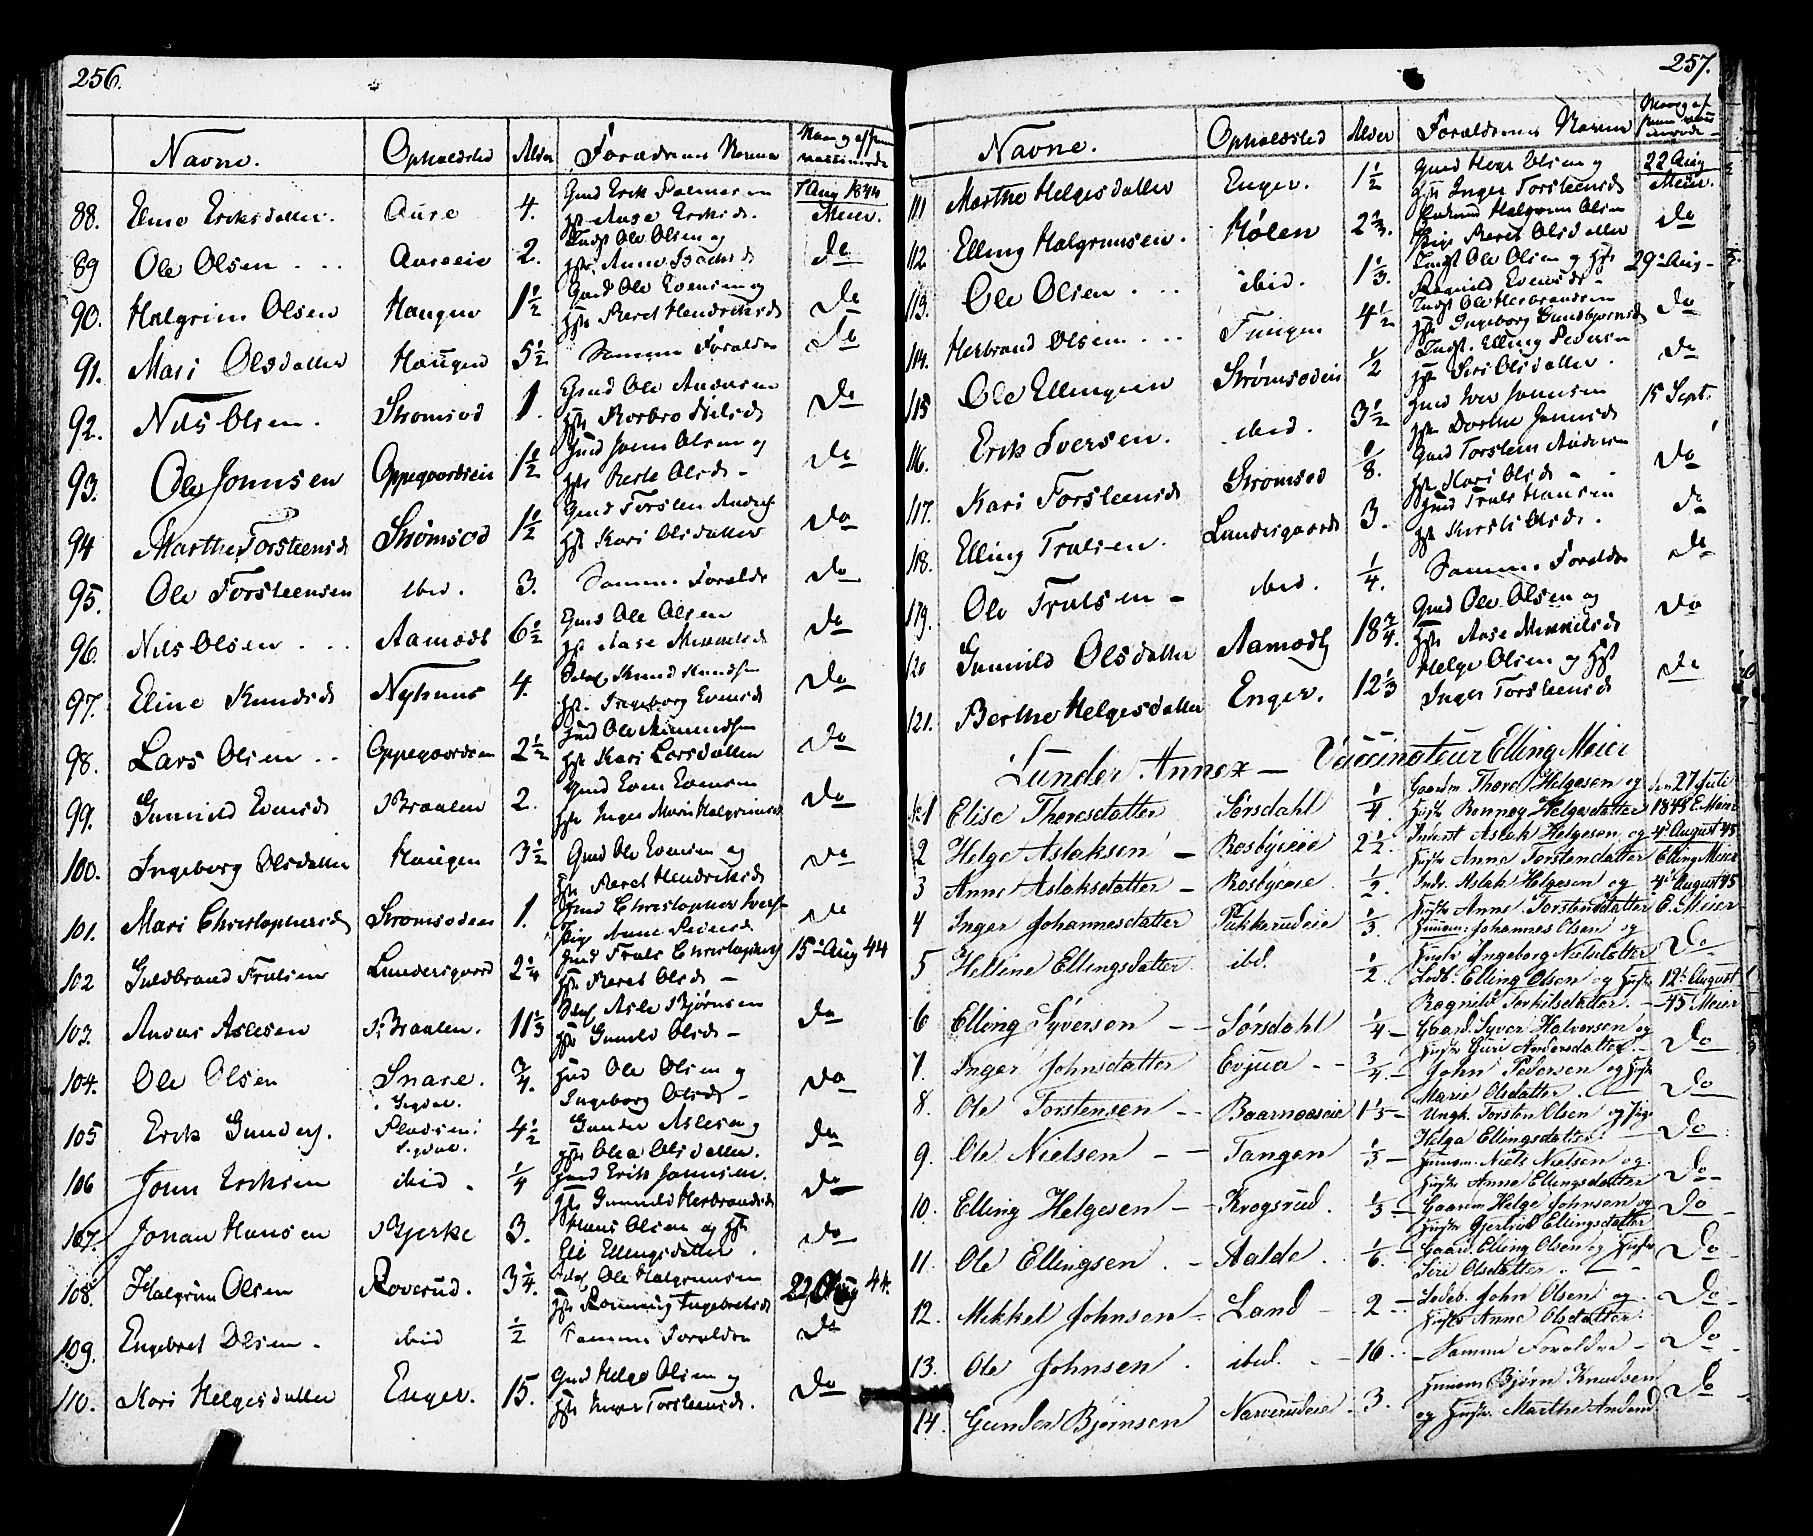 256.
Navne. Opholdsted Alder Forældrenes Navne
88. Eline Eriksdatter. Aure 4. Gmd Erik
Hst Aase Eriksd. 7 Aug 1844 Meier.
89 Ole Olsen . . . Aureeie 2. Indst Ole Olsen og
Hst. Anne Do
90. Halgrim Olsen Haugen 1 1/2 Gmd Ole Evensen og
Hst. Beret Hendriksd Do
91. Mari Olsdatter Haugen 5 1/2 Samme Forældre Do
92. Nils Olsen. Strømsod 1. Gmd Ole Andersen
Hst Borbro Nielsd Do
93. Ole Jonnsen Oppegaardseie 1 1/2 Gmd Jonn Olsen og
Hst Berte Olsd - Do
94 Marthe Torsteensd Strømsod 1 1/2 Gmd Torsten Anders
Hst Kari Olsdatter Do
95. Ole Torsteensen ibid. 3. Samme Foreldr Do
96. Nils Olsen . . . Aamodt 6 1/2 Gmd Ole Olsen
Hst Aase Mikkelsd Do
97. Eline Knudsd Nyhuus 4. Knud Knudsen
Hst. Ingeborg Evensd Do
98. Lars Olsen . . Oppegaardseie 2 1/2 Gmd Ole
Hst Kari Larsdatter Do
99. Gunnild Evensd Braalen 2. Gmd Even Evensen
Hst Inger Marie Halgrimsd Do
100. Ingeborg Olsdatter Haugen 3 1/2 Gmd Ole Evensen og
Hst Beret Hendriksd Do
101. Mari Christophersd Strømsodeie 1. Gmd Christopher Ivers
Pige Anne Do
102 Guldbrand Trulsen Lundesgaard 2 1/4 Gmd Truls Christophers
Hst. Beret Olsd - 15de Aug 44
103. Anders Aslesen Braalen. 11 1/3 Asle Bjørnsen
Hst Gunild Olsd - Do
104. Ole Olsen Snare. Sigdal. 3/4. Gmd Ole Olsen og
Ingeborg Olsd - Do
105 Erik Gunders. Sigdal. 4 1/2 Gunder Aslesen og
Hst Olea Olsdatter. Do
106 Jonn Eriksen ibid. 1/4 Gmd Erik Jonnsen.
Hst Gunnild Herbrandsd Do
107. Johan Hansen Bjerke 3. Hans Olsen og Hst
Eli Ellingsdatter. Do
108. Halgrim Olsen Roverud. 3 1/4. Ole Halgrimsen
Hst Ronnug Ingebretsd 22 Aug 44.
109. Engebret Olsen. ibid 1/2 Samme Forældre Do
110. Kari Helgesdatter Enger. 15. Gmd Helge Olsen og
Hst Inger Torsteensd. Do
257.
Navne. Opholdsted Alder Forældrenes Navne
111 Marthe Helgesdatter Enger. 1 1/2 Gmd Helge Olsen og
Hst Inger Torsteensd 22 Aug Meier.
112 Elling Halgrimsen. Hølen 2 2/3. Halgrim Olsen
Pige Beret Olsdatter Do
113. Ole Olsen . . . ibid. 1 1/3. Indst Ole Olsen og Hst
Ragnild Evensd - 29de Aug -
114. Herbrand Olsen . . . 4 1/2 Indst Ole Herbrandsen
Hst Ingeborg Gundbjørnsd Do
115 Ole Ellingsen Strømsodeie 1/2 Indst. Elling Pedersen
Hst Siri Olsdatter. Do
116. Erik Iversen. ibid. 3 1/2 Gmd Iver Jonnsen
Hst Dorthe Jonnsd 15 Sept.
117. Kari Torsteensd Strømsod 1/8. Gmd Torsteen Anders
Hst Kari Olsd - Do
118. Elling Trulsen. Lundesgaard 3. Gmd Truls Hansen
Hst Kirsti Olsd. Do
119. Ole Trulsen - ibid. 1/4. Samme Foreldre Do
120 Gunnild Olsdatter Aamodt 18 3/4. Gmd Ole Olsen og
Hst Aase Mikkelsd Do
121. Berthe Helgesdatter Enger. 12 1/3 Helge Olsen og Hst
Inger Torsteensd Do
Lunder Annex - Vaccinateur Elling Meier
No 1 Elise Thoresdatter Sørsdahl 1/4. Gaardm Thore Helgesen og
Hustr Rønnøg Helgesdatter den 27 Juli 1848 E. Meier
2 Helge Aslaksen - Rosbyeie 2 1/2. Inderst Aslak Helgesen og
Hustr Anne Torstendatter 4de August 45 Elling Meier
3 Anne Aslaksdatter - Rosbyeie 1/2. Indr. Aslak Helgesen og
Hustr Anne Torstendatter 4de August 45 E. Meier
4 Inger Johannesdatter Pukkerudeie 1/3. Huusm. Johannes Olsen og
Hustr Ingeborg Nielsdatter Do
5 Helline Ellingsdatter. ibd. 1/2. Elling Olsen og Hustr
Ragnild Torkilsdatter. 12te August 45 Meier
6 Elling Syversen - - Sørsdahl 1/4 - Gaard. Syver Halvorsen og
Hustr Guri Andersdatter. - Do
7. Inger Johnsdatter Evjua - - 3/4 - John Pedersen og Hustr
Marie Olsdatter. Do
8. Ole Torstensen - - Baarnaaseie 1 1/3 - Ungk. Torsten Olsen og Pige
Helga Ellingsdatter. Do
9. Ole Nielsen - - Tangen 1/3 - Huusm. Niels Nielsen og
Hustr Anne Ellingsdatter Do -
10. Elling Helgesen - Krogsrud. 1/3 - Gaardm Helge Johnsen og
Hustr Gjertrud Ellingsdatter Do -
11. Ole Ellingsen. - Aalde. 1/6. - Gaard. Elling Olsen og Hustr
Siri Olsdatter. Do -
12. Mikkel Johnsen - Land - 2 - John Olsen og
Hustr Anne Olsdatter. Do -
13. Ole Johnsen. ibid. - 16. - Samme Forældre - Do
14. Gunder Bjørnsen Narverudeie - 3. Huusm Bjørn Knudsen
og Hustr. Marthe Do